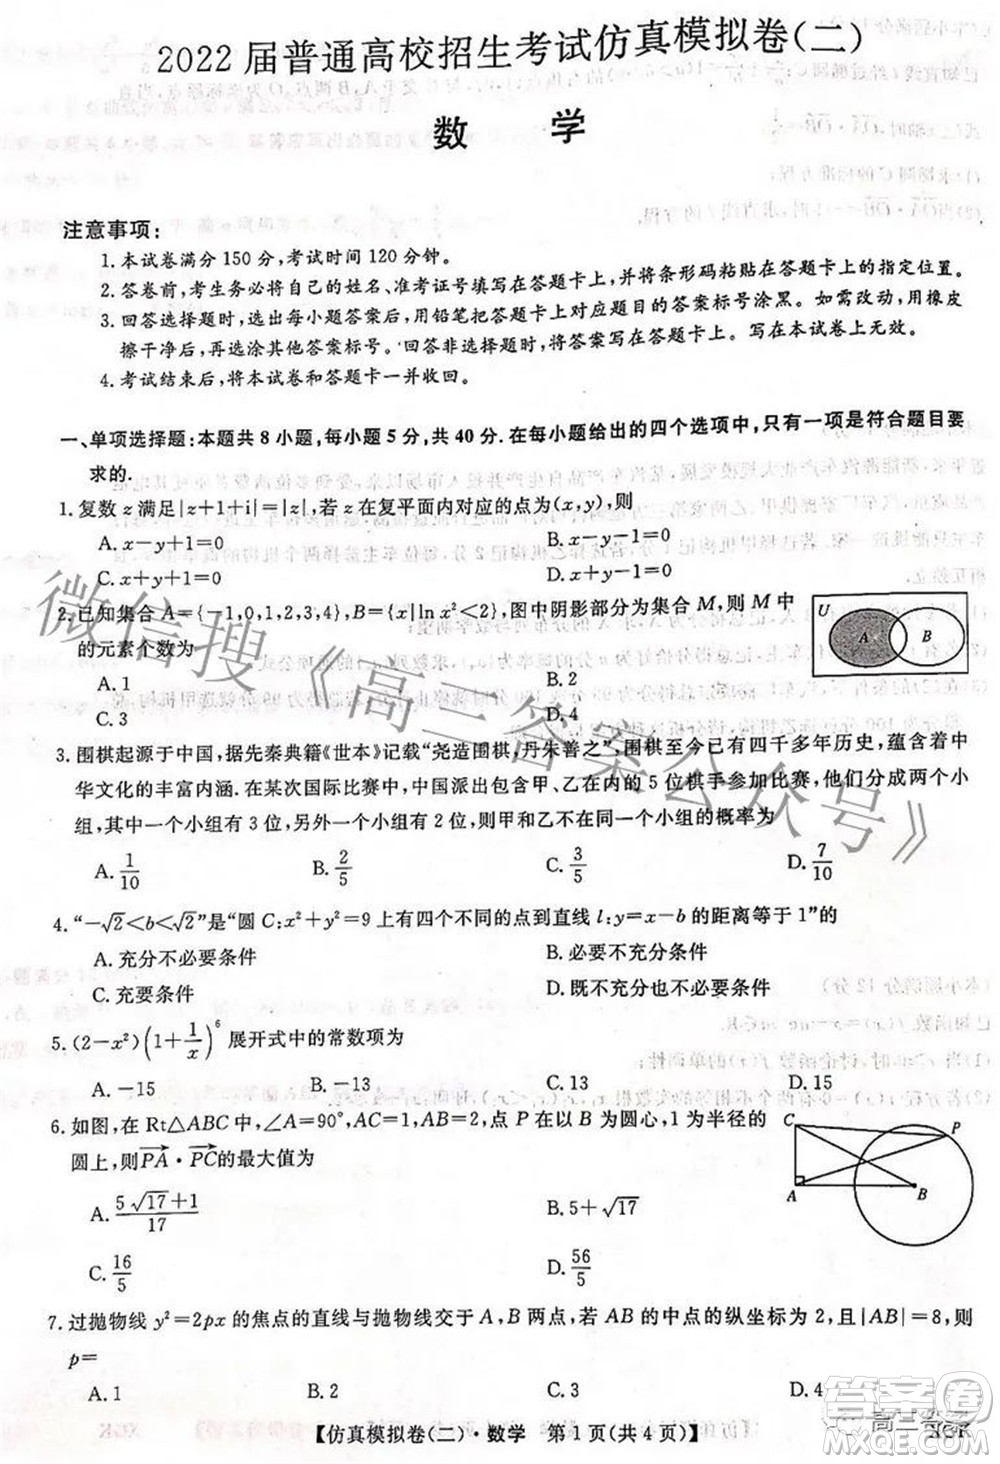 2022届普通高校招生考试仿真模拟卷(二)
数 学
注意事项:
1.本试卷满分150分,考试时间120分钟.
2.答卷前,考生务必将自己的姓名、准考证号填写在答题卡上,并将条形码粘贴在答题卡上的指定位置.
3.回答选择题时,选出每小题答案后,用铅笔把答题卡上的答案标号涂黑。如需改动,用橡皮
擦干净后,再选涂其他答案标号.回答非选择题时,将答案写在答题卡上。写在本试卷上无效.
4.考试结束后,将本试卷和答题卡一并收回.
一、单项选择题:本题共8小题,每小题5分,共40分.在每小题给出的四个选项中,只有一项是符合题目要
求的.
1.复数z满足|z+1+i|=|z|,若z在复平面内对应的点为(x,y),则
A.x-y+1=0 B.x-y-1=0
C.x+y+1=0 D.x+y-1=0
2.已知集合A={-1,0,1,2,3,4},B={x|ln x²<2},图中阴影部分为集合M,则M中
的元素个数为
A.1 B.2
C.3 D.4
U A B
3.围棋起源于中国,据先秦典籍《世本》记载“尧造围棋,丹朱善之”,围棋至今已有四千多年历史,蕴含着中
华文化的丰富内涵.在某次国际比赛中,中国派出包含甲、乙在内的5位棋手参加比赛,他们分成两个小
组,其中一个小组有3位,另外一个小组有2位,则甲和乙不在同一个小组的概率为
A.1/10 B.2/5 C.3/5 D.7/10
4.“-√2<b<√2”是“圆C:x²+y²=9上有四个不同的点到直线l:y=x-b的距离等于1”的
A.充分不必要条件 B.必要不充分条件
C.充要条件 D.既不充分也不必要条件
5.(2-x²)(1+1/x)⁶展开式中的常数项为
A.-15 B.-13 C.13 D.15
6.如图,在Rt△ABC中,∠A=90°,AC=1,AB=2,点P在以B为圆心,1为半径的
圆上,则PA·PC的最大值为
A.(5√17+1)/17 B.5+√17
C.16/5 D.56/5
C P A B
7.过抛物线y²=2px的焦点的直线与抛物线交于A,B两点,若AB的中点的纵坐标为2,且|AB|=8,则
p=
A.1 B.2 C.3 D.4
【仿真模拟卷(二)·数学 第1页(共4页)】
XGK
微信搜《高三答案公众号》
答案圈